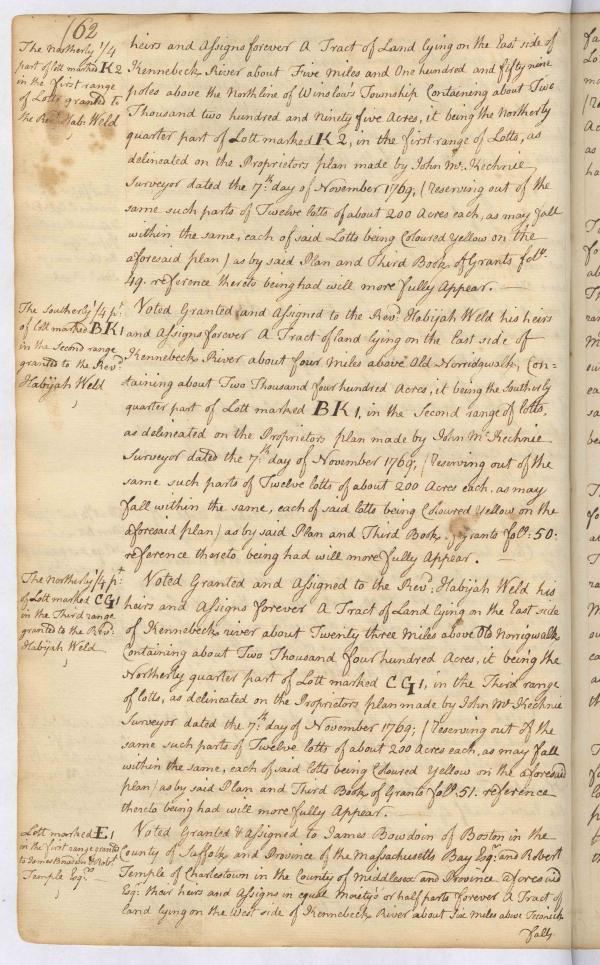 162
The Northerly 1/4
part of lott marked K2
in the first range
of Lotts granted to
the Revd. Hab: Weld
heirs and Assigns forever A Tract of Land lying on the East side of
Kennebeck River about Five miles and One hundred and fifty nine
poles above the Northline of Winslows Township Containing about Two
Thousand two hundred and Ninety five Acres, it being the Northerly
quarter part of Lott marked K2, in the first range of Lotts, as
delineated on the Proprietors plan made by John Mc. Kechnie
Surveyor dated the 7th. day of November 1769, (Reserving out of the
same such parts of Twelve lotts of about 200 Acres each, as may fall
within the same, each of said Lotts being Coloured Yellow on the
aforesaid plan) as by said Plan and Third Book of Grants folo.
49. reference thereto being had will more fully Appear.
The Southerly 1/4 pt.
of lott marked BK1
in the Second range
granted to the Revd.
Habijah Weld
Voted Granted and Assigned to the Revd. Habijah Weld his heirs
and Assigns forever A Tract of land lying on the East side of
Kennebeck River about four miles above Old Norridgwalk, Con-
taining about Two Thousand four hundred Acres, it being the Southerly
quarter part of Lott marked BK1, in the Second range of lotts,
as delineated on the Proprietors plan made by John Mc. Kechnie
Surveyor dated the 7th. day of November 1769; (Reserving out of the
same such parts of Twelve lotts of about 200 Acres each, as may
fall within the same, each of said lotts being Coloured Yellow on the
aforesaid plan) as by said Plan and Third Book of Grants folo: 50:
reference thereto being had will more fully Appear.
The Northerly 1/4 pt.
of Lott marked CG1
in the Third range
granted to the Revd:
Habijah Weld
Voted Granted and Assigned to the Revd: Habijah Weld his
heirs and Assigns forever A Tract of Land lying on the East side
of Kennebeck river about Twenty three Miles above Old Norrigwalk
Containing about Two Thousand four hundred Acres, it being the
Northerly quarter part of Lott marked CG1, in the Third range
of lotts, as delineated on the Proprietors plan made by John Mc. Kechnie
Surveyor dated the 7th. day of November 1769; (Reserving out of the
same such parts of Twelve lotts of about 200 Acres each, as may fall
within the same, each of said lotts being Coloured Yellow on the aforesaid
plan) as by said Plan and Third Book of Grants folo: 51. reference
thereto being had will more fully Appear.
Lott marked E1
in the first range granted
to James Bowdoin & Robt.
Temple Esqrs.
Voted Granted & Assigned to James Bowdoin of Boston in the
County of Suffolk and Province of the Massachusetts Bay Esqr. and Robert
Temple of Charlestown in the County of Middlesex and Province aforesaid
Esqr. their heirs and Assigns in equal Moietys or half parts forever A Tract of
land lying on the West side of Kennebeck River about Six Miles above Teconick
falls